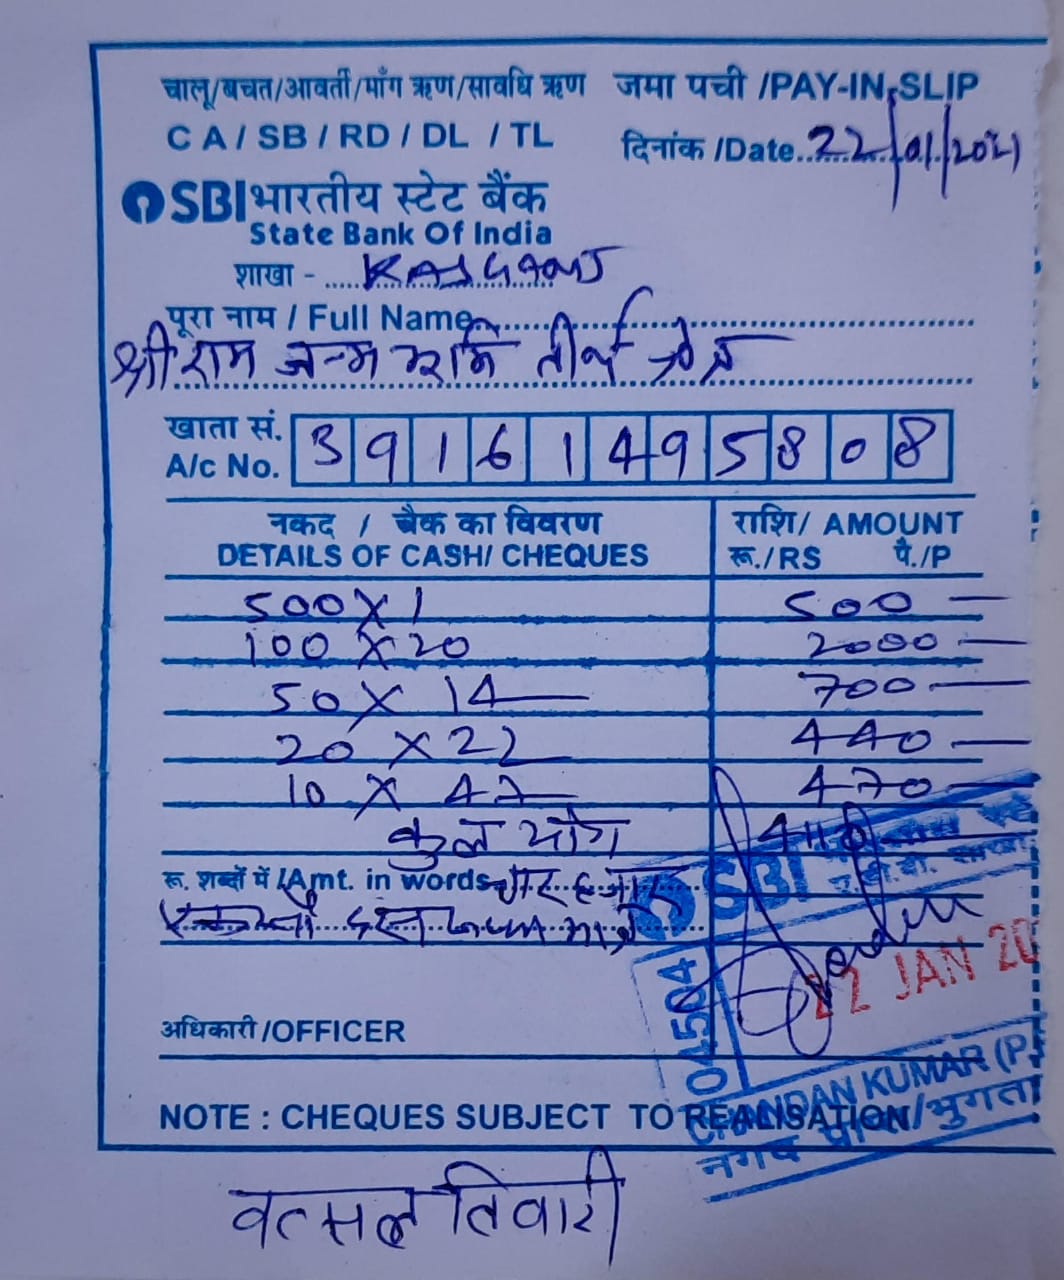 चालू/बचत/आवर्ती/माँग ऋण/सावधि ऋण जमा पर्ची /PAY-IN-SLIP
CA / SB / RD / DL / TL दिनांक /Date 22/01/2021
SBI भारतीय स्टेट बैंक
State Bank Of India
शाखा - KASGANJ
पूरा नाम / Full Name
श्री राम जन्म भूमि तीर्थ क्षेत्र
खाता सं. 
A/c No. 39161495808
नकद / चैक का विवरण राशि/ AMOUNT
DETAILS OF CASH/ CHEQUES रू./RS पै./P
500 X 1 500 —
100 X 20 2000 —
50 X 14 — 700 —
20 X 22 440 —
10 X 47 470 —
कुल योग 4110
रू. शब्दों में /Amt. in words चार हजार
एक सौ दस रूपये मात्र
SBI
04504
22 JAN 20
अधिकारी /OFFICER
CHANDAN KUMAR (P
NOTE : CHEQUES SUBJECT TO REALISATION
नगद /भुगता
वत्सल तिवारी